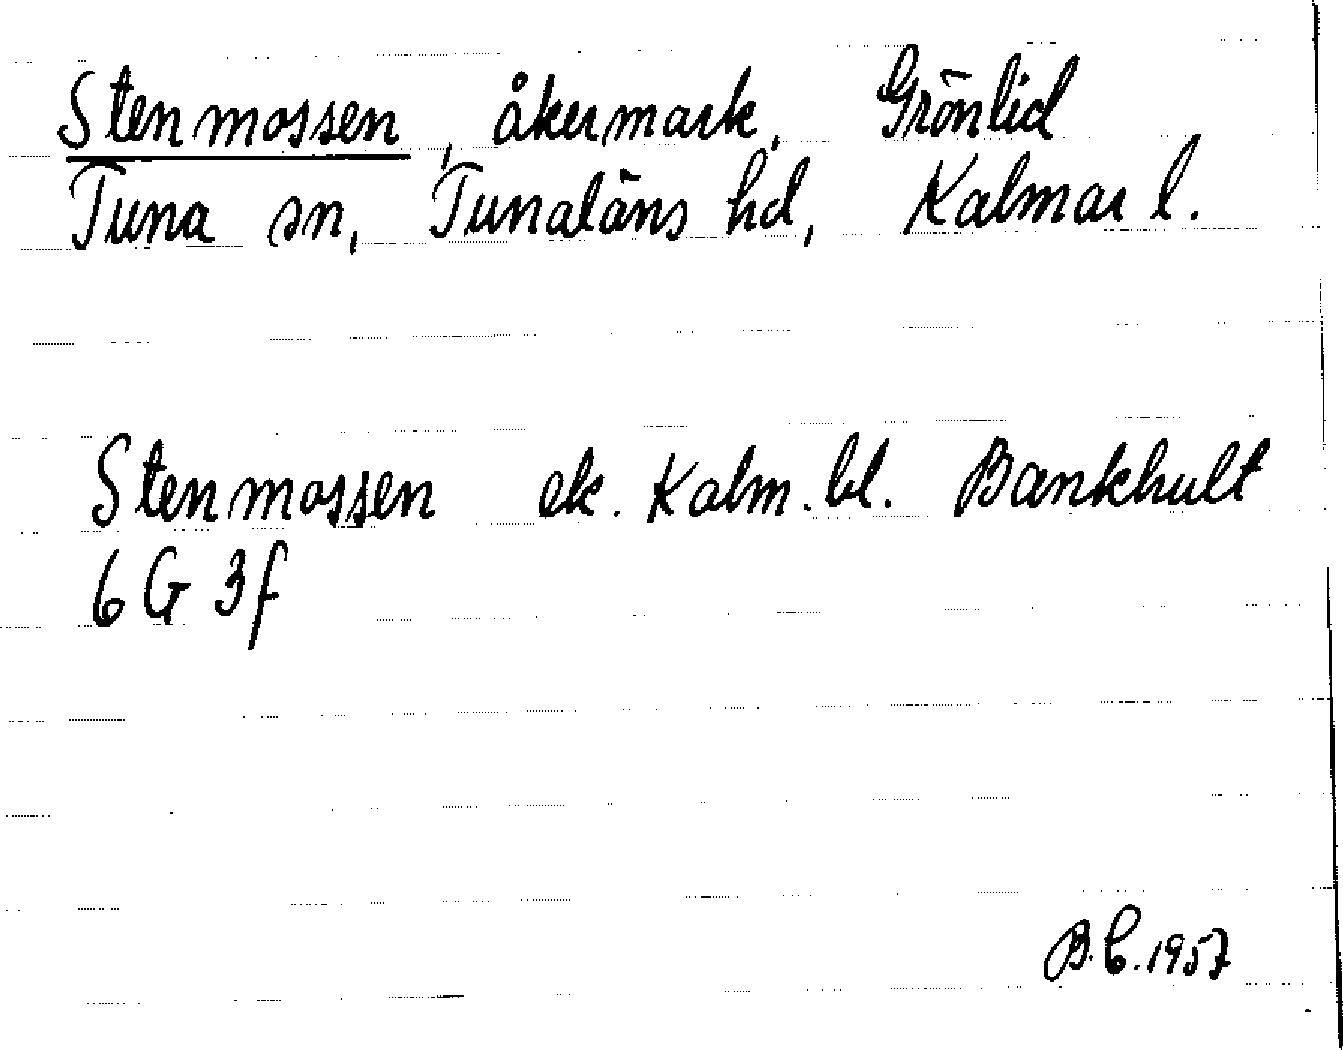 Stenmossen, åkermark, Grönlid
Tuna sn, Tunaläns hd, Kalmar l.
Stenmossen ek. Kalm. bl. Bankhult
6 G 3f
B.C. 1957